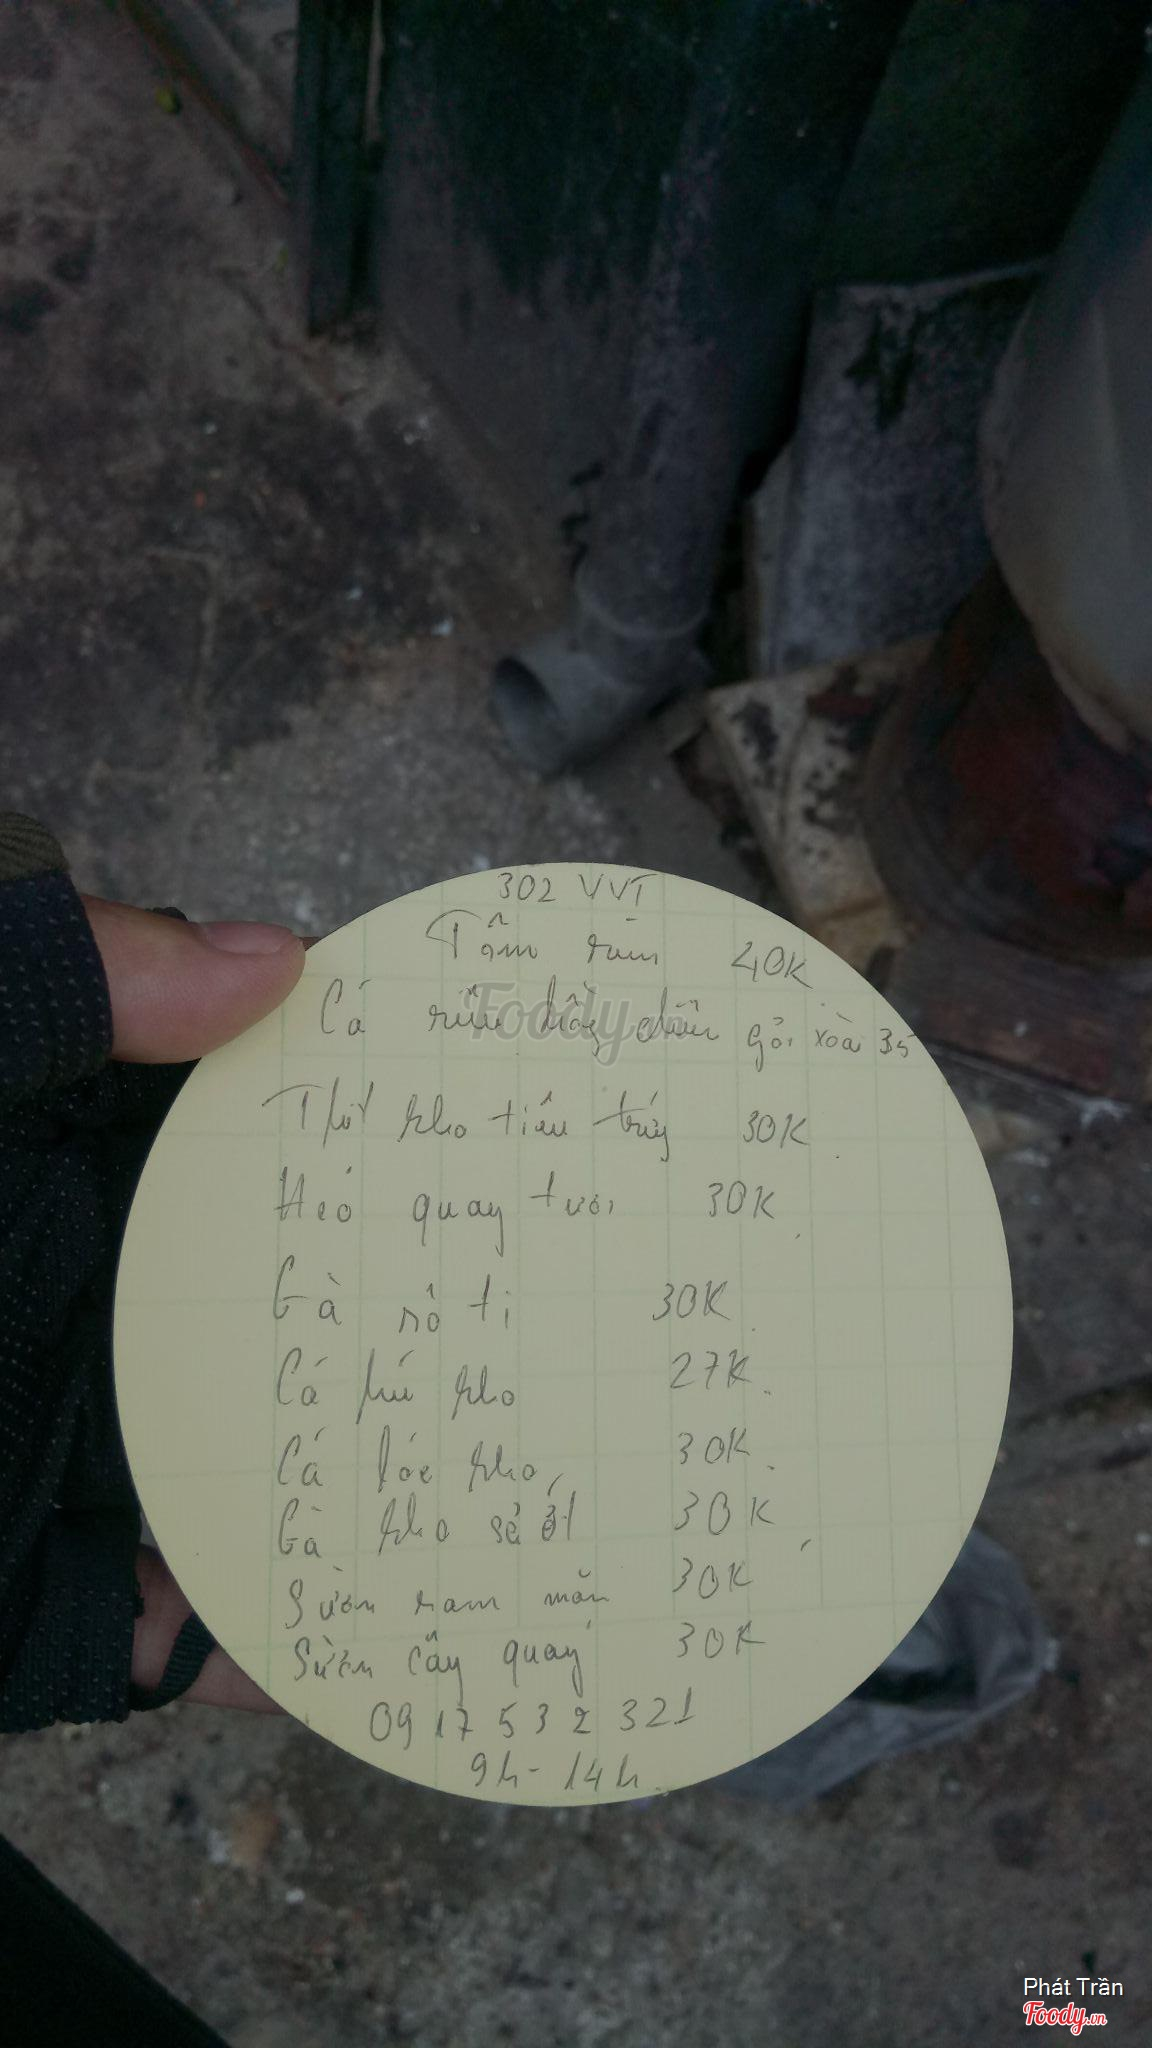 302 VVT
Tôm ram 40K
Cá rừu bống dừa gỏi xoài 35
Thịt kho tiêu trứng 30K
Heo quay tươi 30K
Gà rô ti 30K
Cá hú kho 27K
Cá lóc kho 30K
Gà kho sả ớt 30K
Sườn ram mặn 30K
Sườn cây quay 30K
0917 532 321
9h - 14h
Foody.vn
Phát Trần
Foody.vn